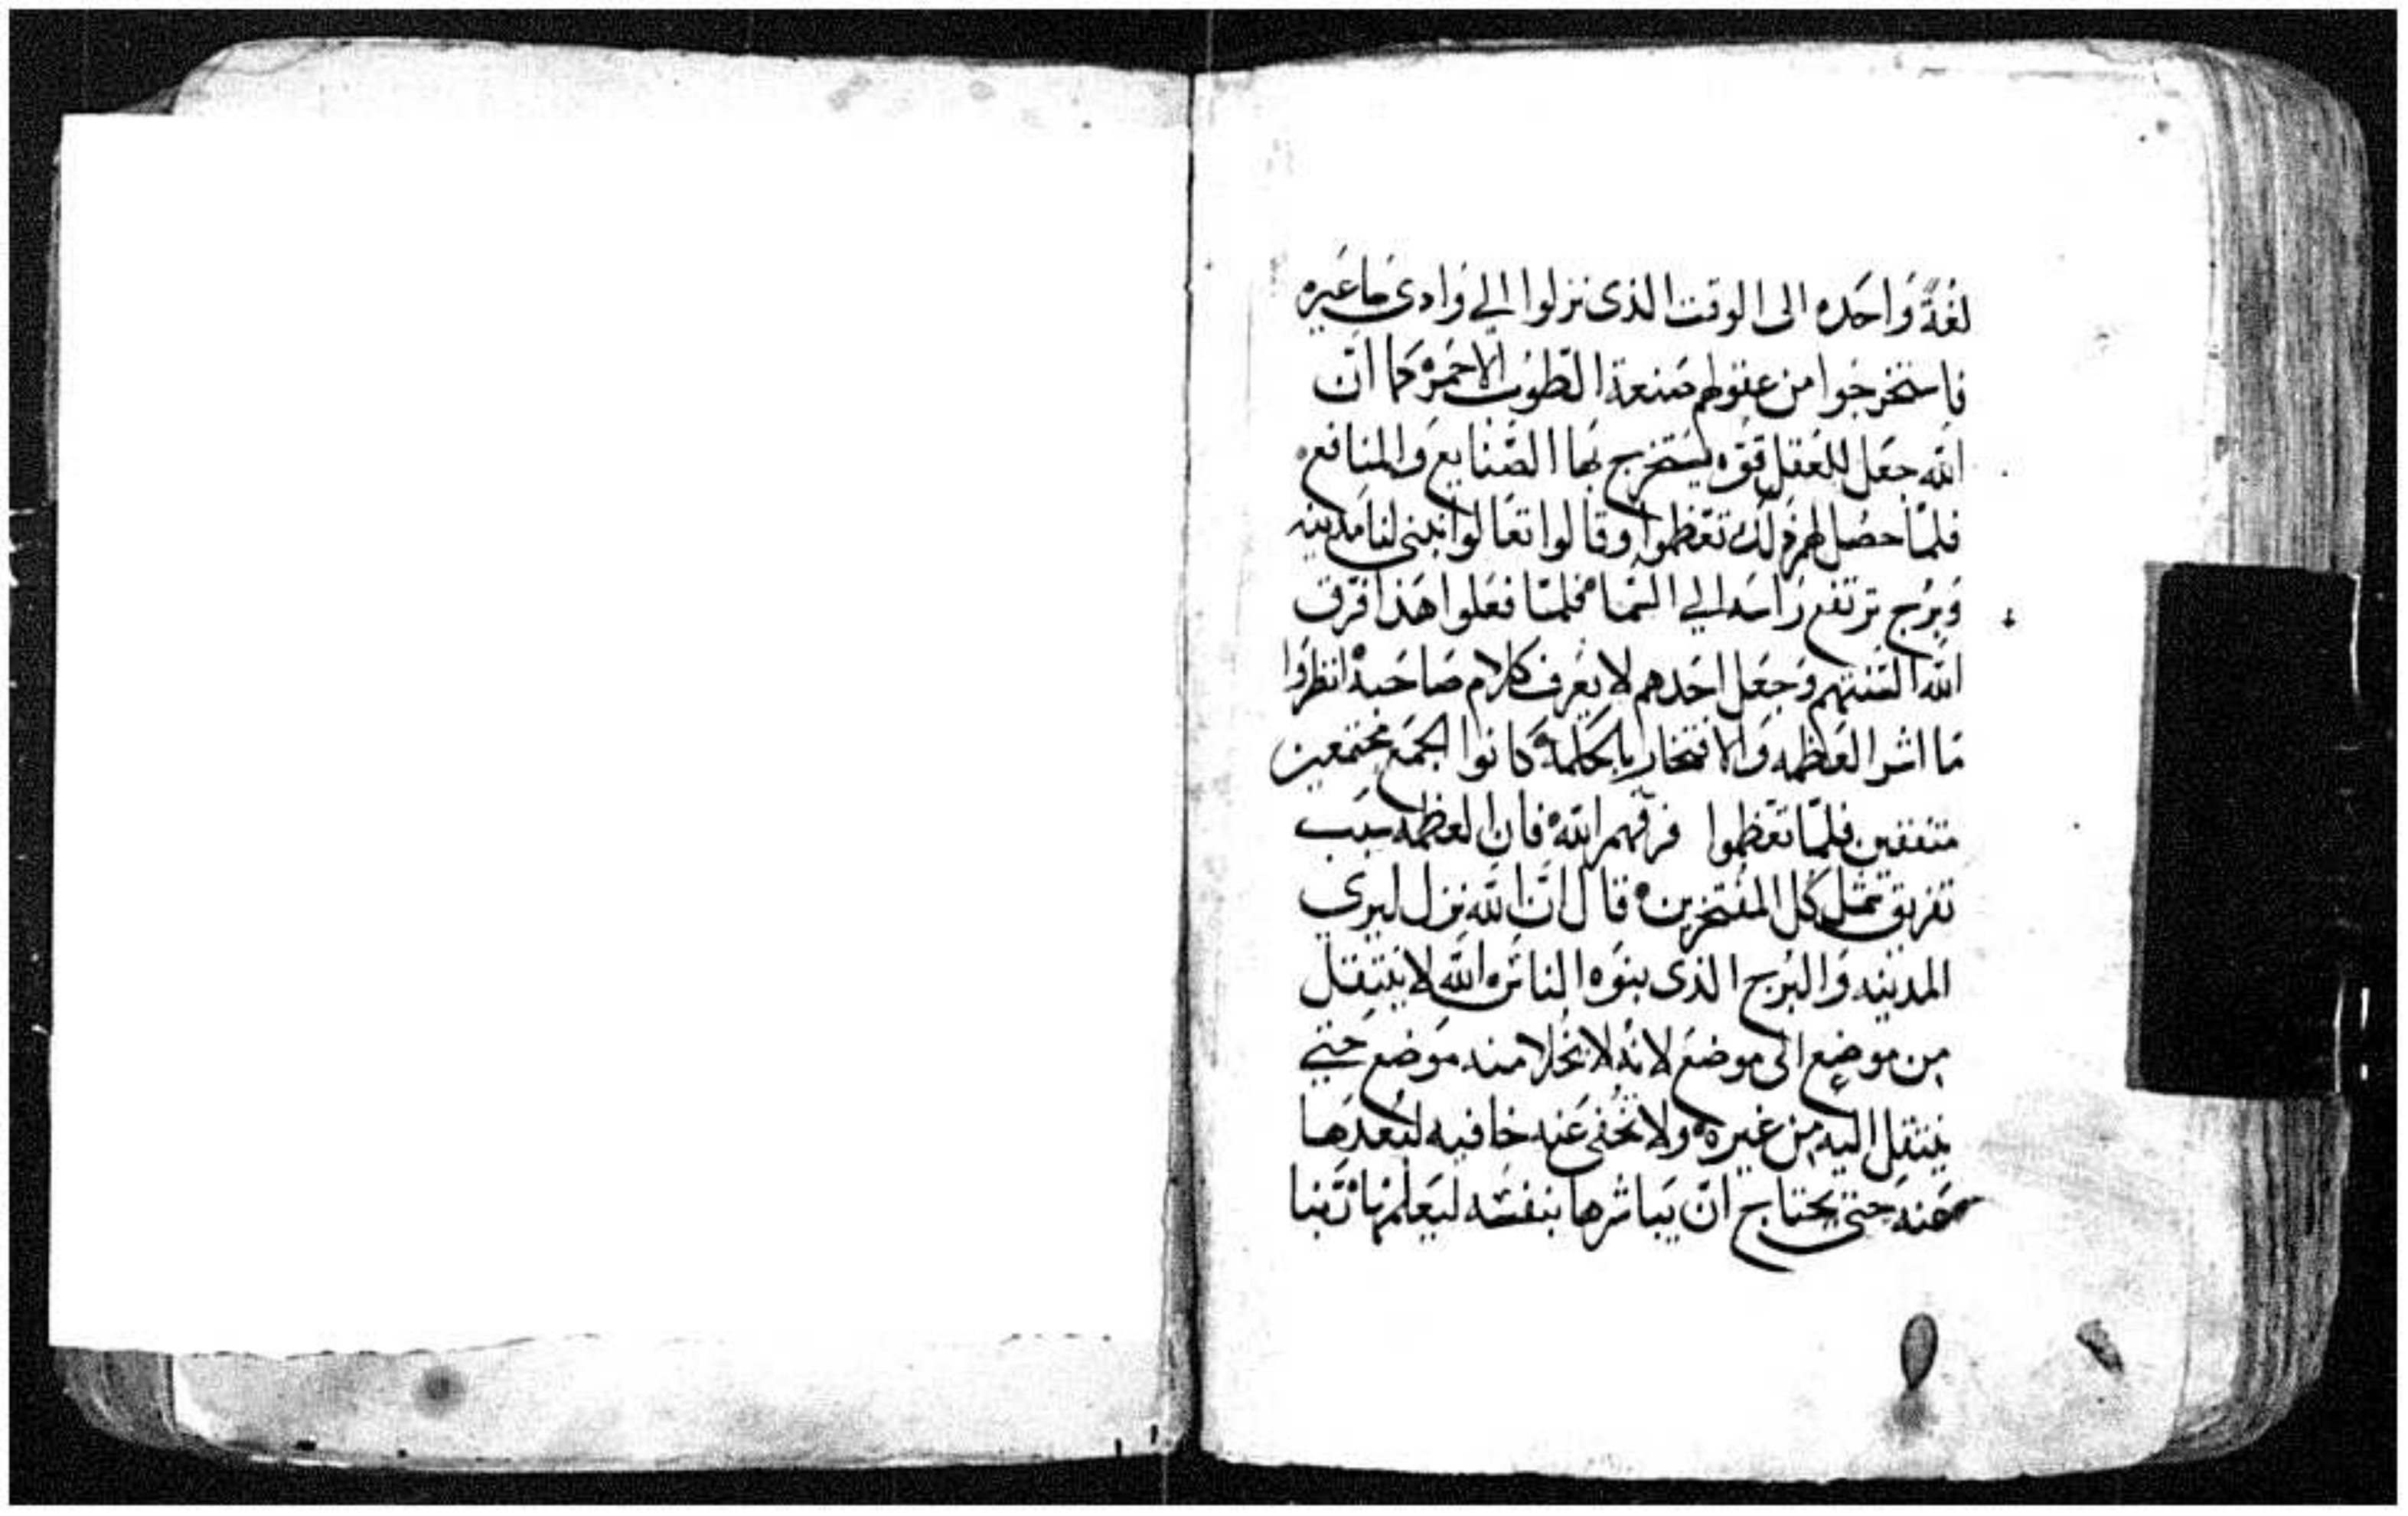 لغة واحده الى الوقت الذى نزلوا الي وادى
فاستخرجوا من عقولهم صنعة الطوب الاحمر كما ان
الله جعل للعقل قوه يستخرج بها الصنايع والمنافع
فلما حصل لهم ذلك تعظموا وقالوا تعالوا نبنى لنا مدينه
وبرج ترتفع راسه الي السما فلما فعلوا هذا فرق
الله السنتهم وجعل احدهم لا يعرف كلام صاحبه انظروا
ما اشر العظمه والافتخار بالحكمه كانوا الجمع مجتمعين
متفقين فلما تعظموا فرقهم الله فان العظمه سبب
تفريق شمل كل المفتخرين قال ان الله نزل ليري
المدينه والبرج الذى بنوه الناس الله لا ينتقل
من موضع الى موضع لانه لا يخلا منه موضع حتي
ينتقل اليه من غيره ولا تخفى عنه خافيه لبعدها
عنه حتى يحتاج ان يباشرها بنفسه ليعلمها